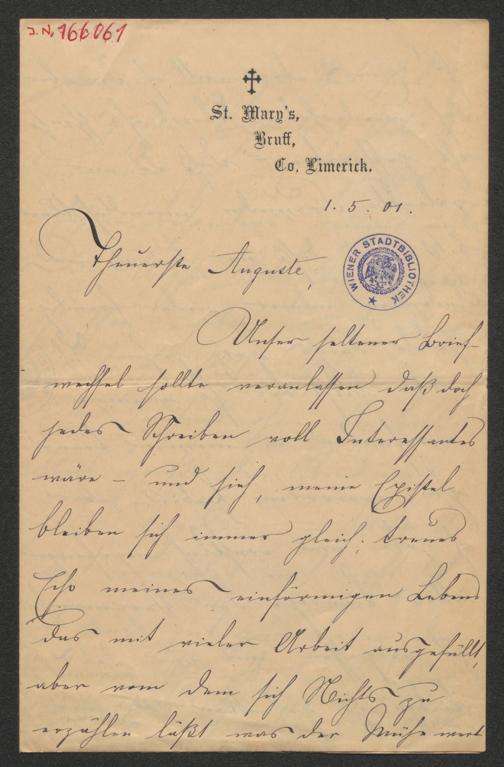 J.N. 166061
St. Mary's,
Bruff,
Co. Limerick.
1. 5. 01.
WIENER STADTBIBLIOTHEK
Theuerste Auguste,
Unser seltener Brief-
wechsel sollte veranlassen daß doch
jedes Schreiben voll Interessantes
wäre – und sieh, meine Epistel
bleiben sich immer gleich; treues
Echo meines einförmigen Lebens
das mit vieler Arbeit ausgefüllt,
aber von dem sich Nichts zu
erzählen läßt was der Mühe wert